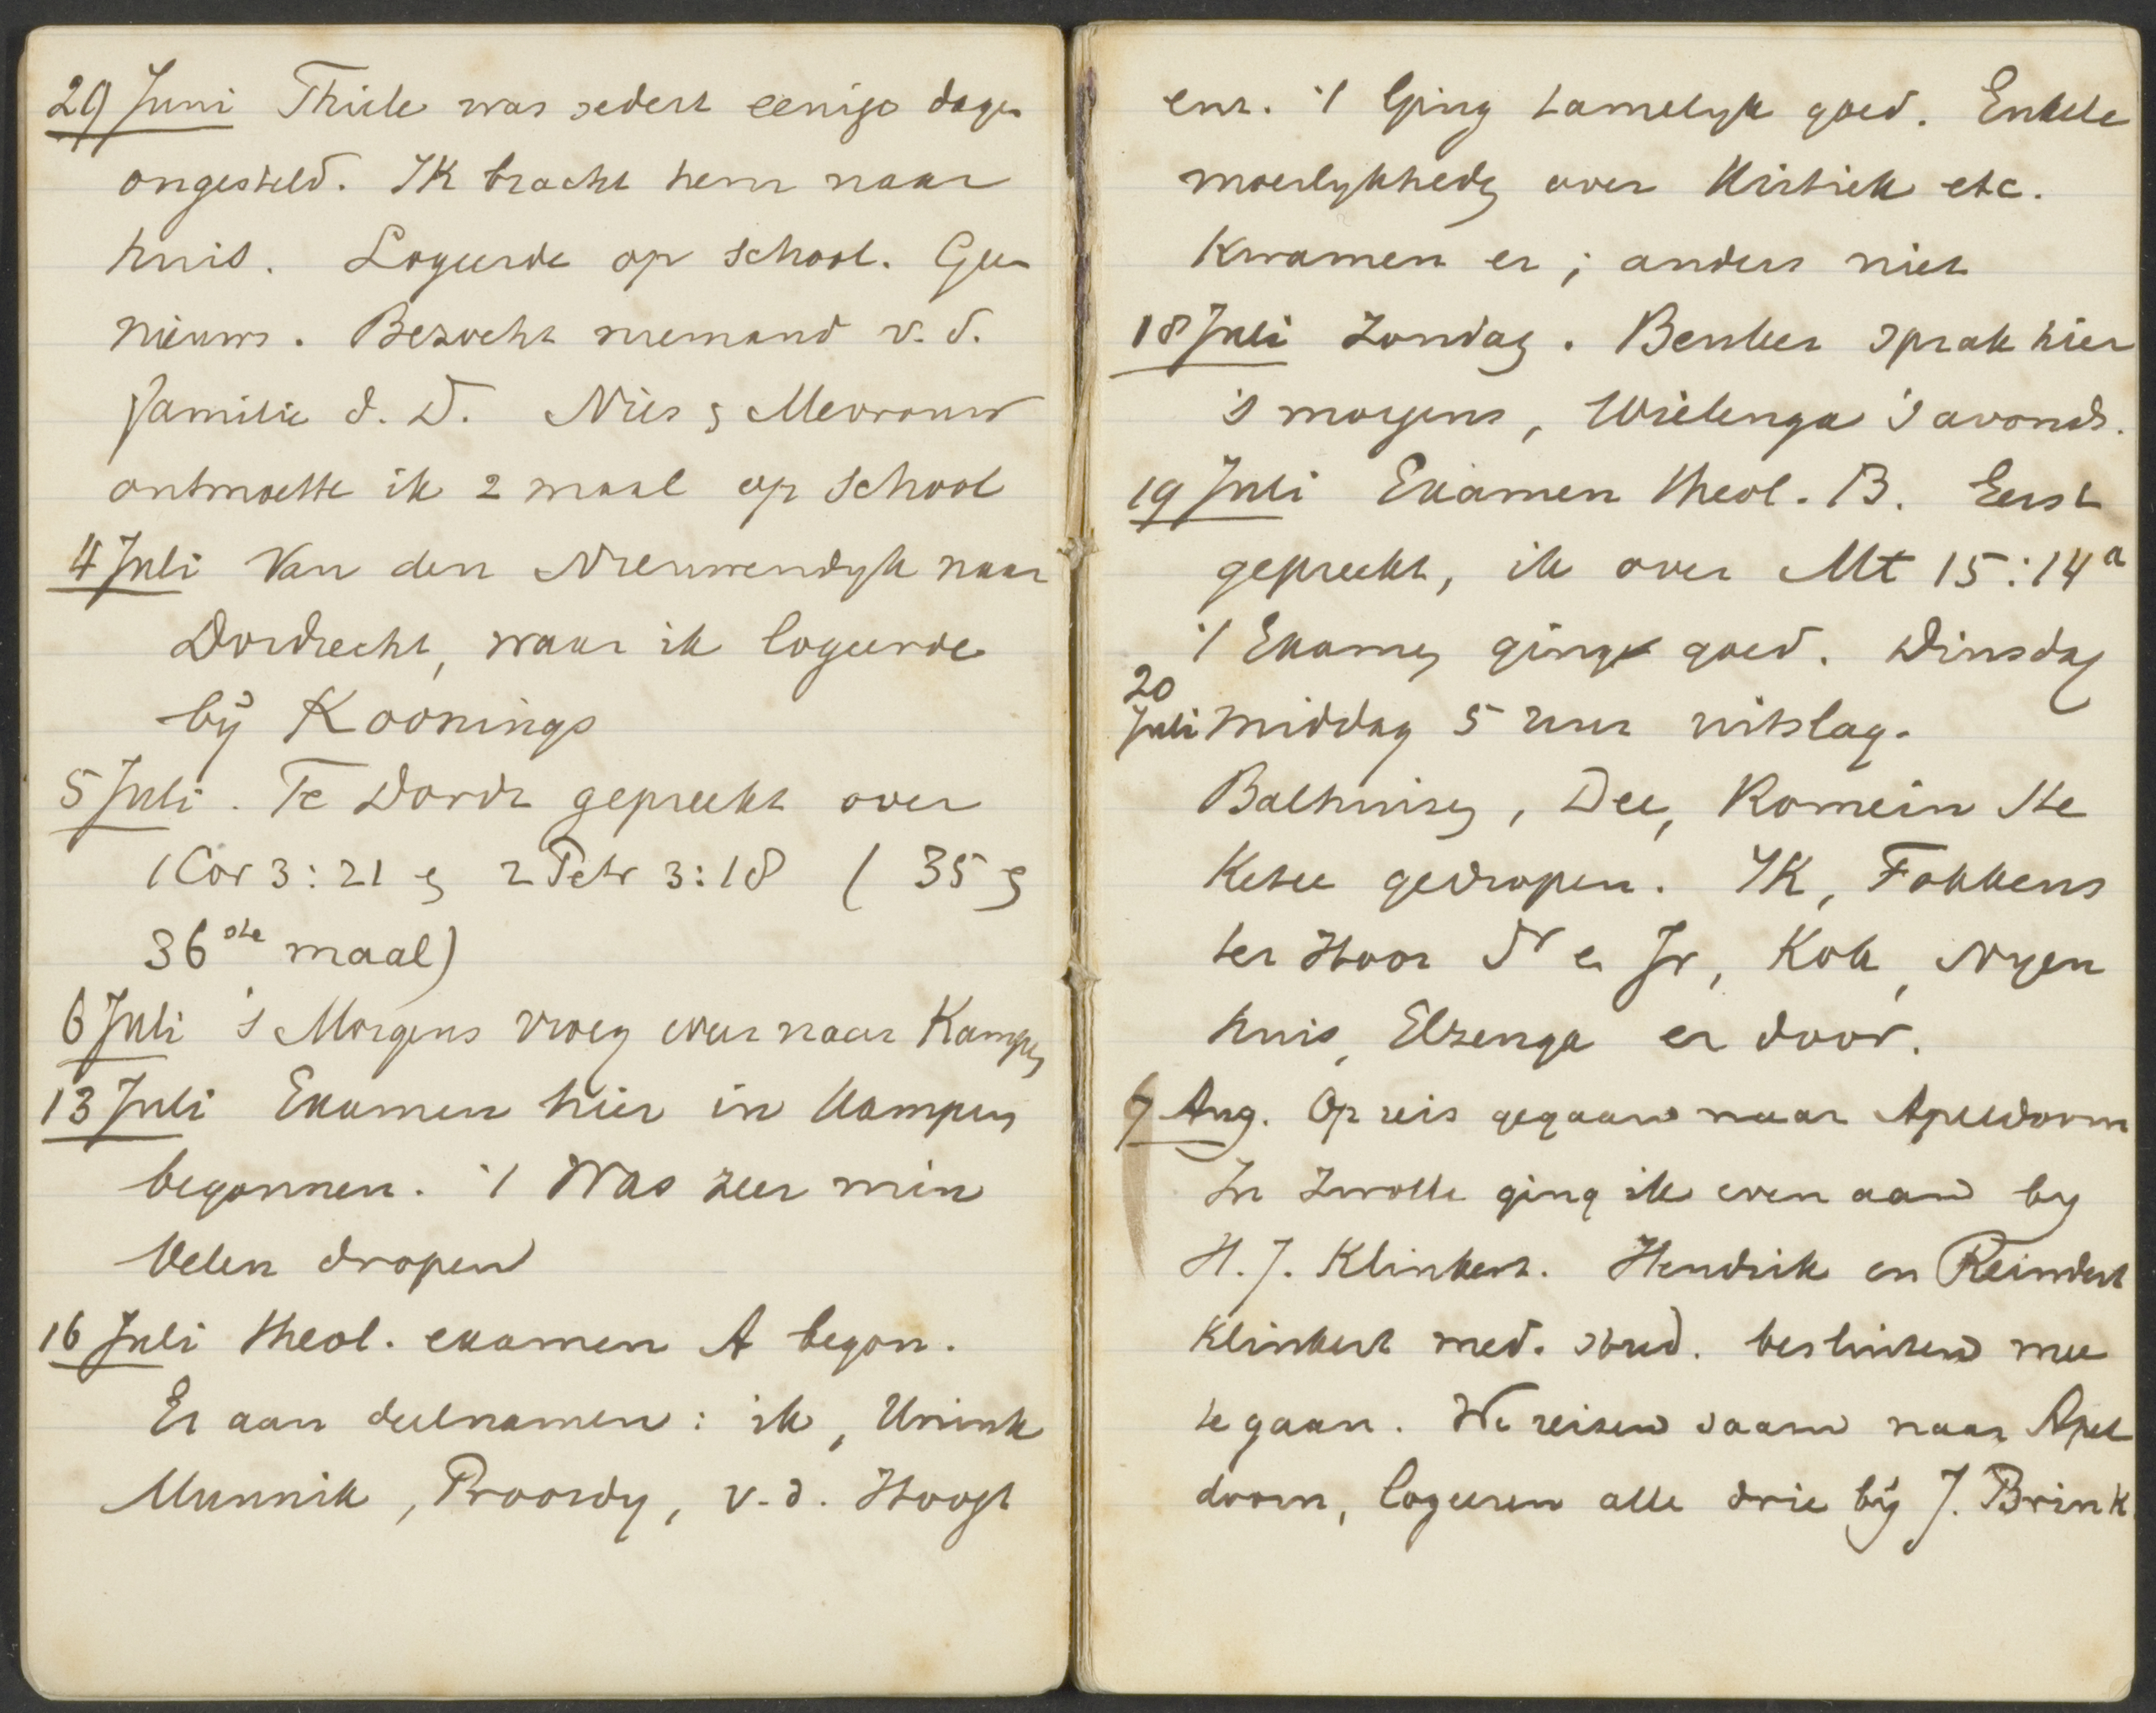 29 Juni Thiele was sedert eenige dagen
ongesteld. IK bracht hem naar
huis. Logeerde op school. Geen
nieuws. Bezocht niemand v. d.
familie d. D. Nies en Mevrouw
ontmoette ik 2 maal op school
4 Juli Van den Nieuwendyk naar
Dordrecht, waar ik logeerde
bÿ Koonings
5 Juli. Te Dordt gepreekt over
1 Cor 3:21 en 2 Petr 3:18 ( 35 en
36ste maal)
6 Juli 's Morgens vroeg weer naar Kampen
13 Juli Examen hier in Kampen
begonnen. 't Was zeer min
Velen dropen
16 Juli theol. examen A begon.
Er aan deelnamen: ik, Unink
Munnik, Proosdy, v. d. Hoogt
enz. 't Ging tamelyk goed. Enkele
moeilykheden over Kritiek etc.
Kwamen er; anders niet
18 Juli Zondag. Beuker sprak hier
's morgens, Wielenga 's avonds.
19 Juli Examen theol. B. Eerst
gepreekt, ik over Mt 15:14a
't Examen ging goed. Dinsdag
20
Juli middag 5 uur uitslag.
Balhuizen, Dee, Romein Ste
Ketee gedropen. IK, Fokkens
ter Hoor Sr en Jr, Kok, Nyen
huis, Elzenga er door.
9 Aug. Op reis gegaan naar Apeldoorn
In Zwolle ging ik even aan by
H. J. Klinkert. Hendrik en Reindert
Klinkert med. stud. besluiten mee
te gaan. We reizen saam naar Apel
doorn, logeeren alle drie bÿ J. Brink